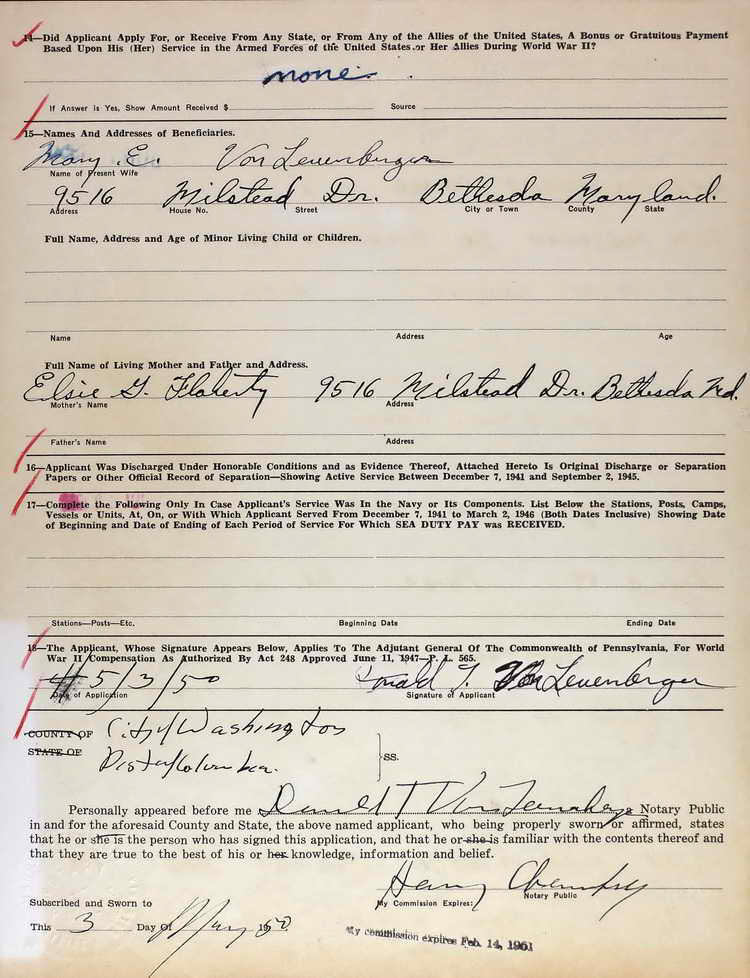 14—Did Applicant Apply For, or Receive From Any State, or From Any of the Allies of the United States, A Bonus or Gratuitous Payment
Based Upon His (Her) Service in the Armed Forces of the United States or Her Allies During World War II?
none
If Answer is Yes, Show Amount Received $ Source
15—Names And Addresses of Beneficiaries.
Mary E. Von Leuenberger
Name of Present Wife
9516 Milstead Dr. Bethesda Maryland.
Address House No. Street City or Town County State
Full Name, Address and Age of Minor Living Child or Children.
Name Address Age
Full Name of Living Mother and Father and Address.
Elsie G. Flaherty 9516 Milstead Dr. Bethesda Md.
Mother's Name Address
Father's Name Address
16—Applicant Was Discharged Under Honorable Conditions and as Evidence Thereof, Attached Hereto Is Original Discharge or Separation
Papers or Other Official Record of Separation—Showing Active Service Between December 7, 1941 and September 2, 1945.
17—Complete the Following Only In Case Applicant's Service Was In the Navy or Its Components. List Below the Stations, Posts, Camps,
Vessels or Units, At, On, or With Which Applicant Served From December 7, 1941 to March 2, 1946 (Both Dates Inclusive) Showing Date
of Beginning and Date of Ending of Each Period of Service For Which SEA DUTY PAY was RECEIVED.
Stations—Posts—Etc. Beginning Date Ending Date
18—The Applicant, Whose Signature Appears Below, Applies To The Adjutant General Of The Commonwealth of Pennsylvania, For World
War II Compensation As Authorized By Act 248 Approved June 11, 1947—P. L. 565.
5/3/50 Donald T. Von Leuenberger
Date of Application Signature of Applicant
COUNTY OF City of Washington
STATE OF
Dist of Columbia
SS.
Personally appeared before me Donald T Von Leuenberger a Notary Public
in and for the aforesaid County and State, the above named applicant, who being properly sworn or affirmed, states
that he or she is the person who has signed this application, and that he or she is familiar with the contents thereof and
that they are true to the best of his or her knowledge, information and belief.
Notary Public
Subscribed and Sworn to My Commission Expires:
This 3 Day Of May 1950
My commission expires Feb. 14, 1951